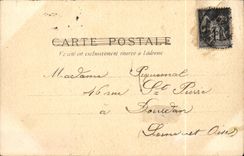 CARTE POSTALE
Ce côté est exclusivement réservé à l'adresse
Madame Piquemal
46 rue St Pierre
à Dourdan
Seine et Oise